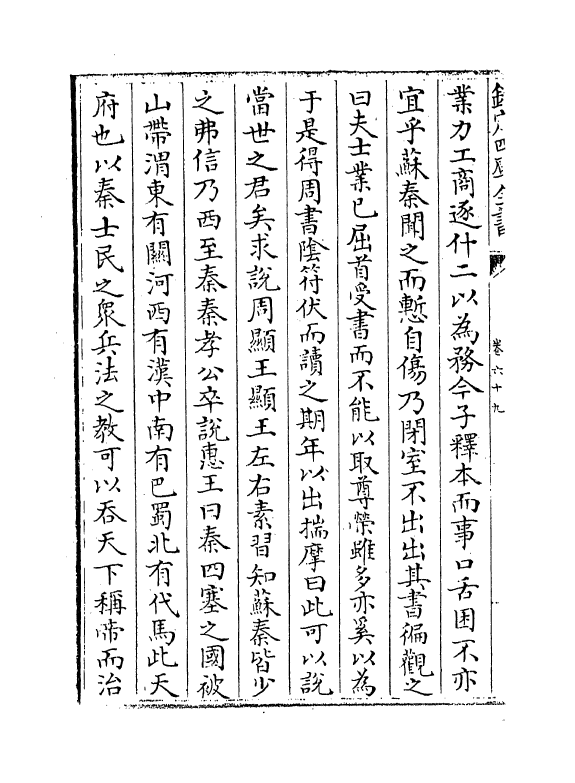 欽定四庫全書
卷六十九
業力工商逐什二以為務今子釋本而事口舌困不亦
宜乎蘇秦聞之而慙自傷乃閉室不出出其書徧觀之
曰夫士業已屈首受書而不能以取尊榮雖多亦奚以為
于是得周書陰符伏而讀之期年以出揣摩曰此可以説
當世之君矣求説周顯王顯王左右素習知蘇秦皆少
之弗信乃西至秦秦孝公卒説惠王曰秦四塞之國被
山帶渭東有關河西有漢中南有巴蜀北有代馬此天
府也以秦士民之衆兵法之教可以吞天下稱帝而治